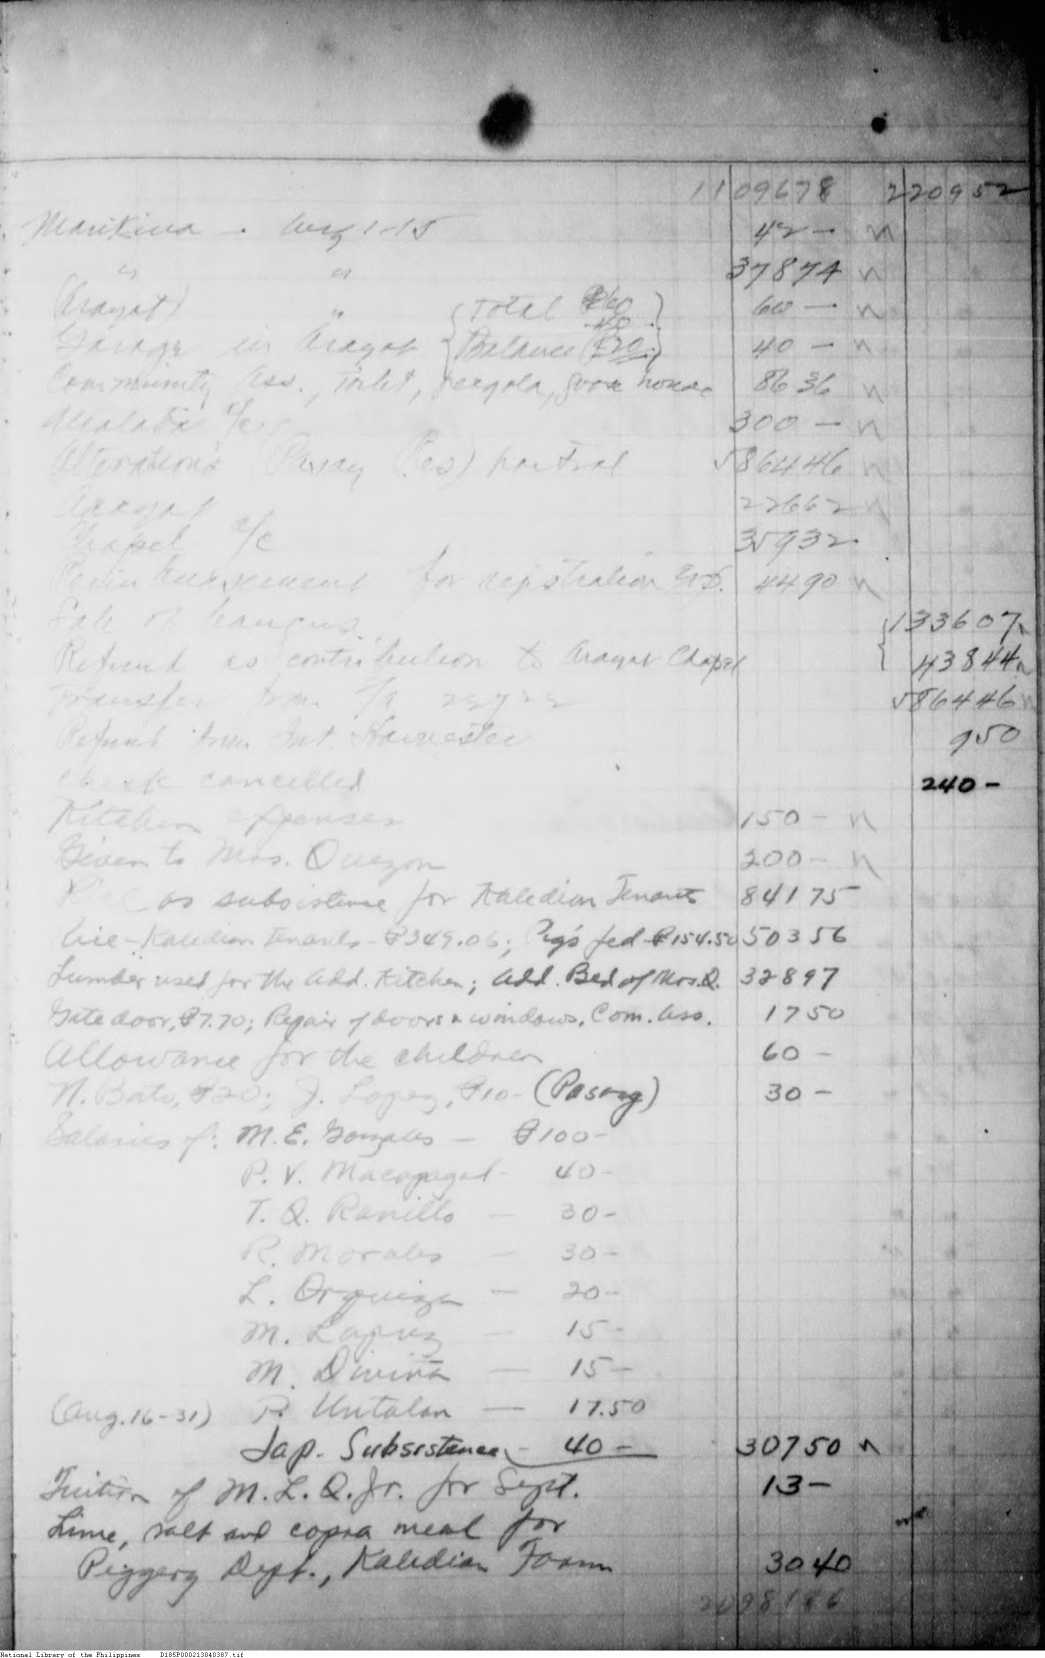 1109678 220952
Marikina - Aug 1-15 42 - n
" " 37874 n
(Arayat) " {Total ₱60 60 - n
Garage in Arayat {Balance ₱20 40 - n
Community Ass., toilet, pergola, goose house 8636 n
a/c 300 - n
Alterations (Pasay Res) partial 586446 n
Arayat 22662 n
Chapel a/c 35932
for registration 4490 n
Sale of bangus 133607 n
Refund as contribution to Arayat Chapel 43844 n
Transfer from 586446 n
Refund from Int. Harvester 950
Check cancelled 240 -
Kitchen expenses 150 - n
Given to Mrs. Quezon 200 - n
as subsistence for Kaledian Tenants 84175
Kaledian tenants - ₱349.06; Pigs fed ₱154.50 50356
Lumber used for the add. Kitchen; add. Bed of Mrs. Q. 32897
Gate door, ₱7.70; Repair of doors & windows, Com. Ass. 1750
Allowance for the children 60 -
N. Bato, ₱20; J. Lopez, ₱10 - (Pasay) 30 -
Salaries of: M. E. Gonzales - ₱100 -
P. V. Macapagal - 40 -
T. Q. Ranillo - 30 -
R. Morales - 30 -
L. Orquiza - 20 -
M. - 15 -
M. Divina - 15 -
(Aug. 16-31) P. Untalan - 17.50
Jap. Subsistence - 40 - 30750 n
Tuition of M. L. Q. Jr. for Sept. 13 -
Lime, salt and copra meal for
Piggery Dept., Kaledian Farm 3040
2098186
National Library of the Philippines D185P000213040387.tif